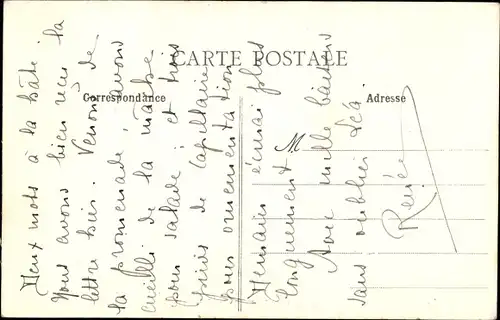 CARTE POSTALE
Correspondance
Adresse
M
Deux mots à la hâte.
Nous avons bien reçu la
lettre hier. Venons de
la promenade, avons
cueilli de la mâche
pour salade, et trois
pieds de Capillaire
pour ornementation
Demain écrirai plus
longuement
Avec mille baisers
sans oublier Léa
Renée